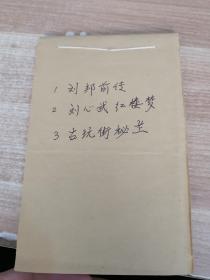 1 刘邦前传
2 刘心武红楼梦
3 古玩街秘笈